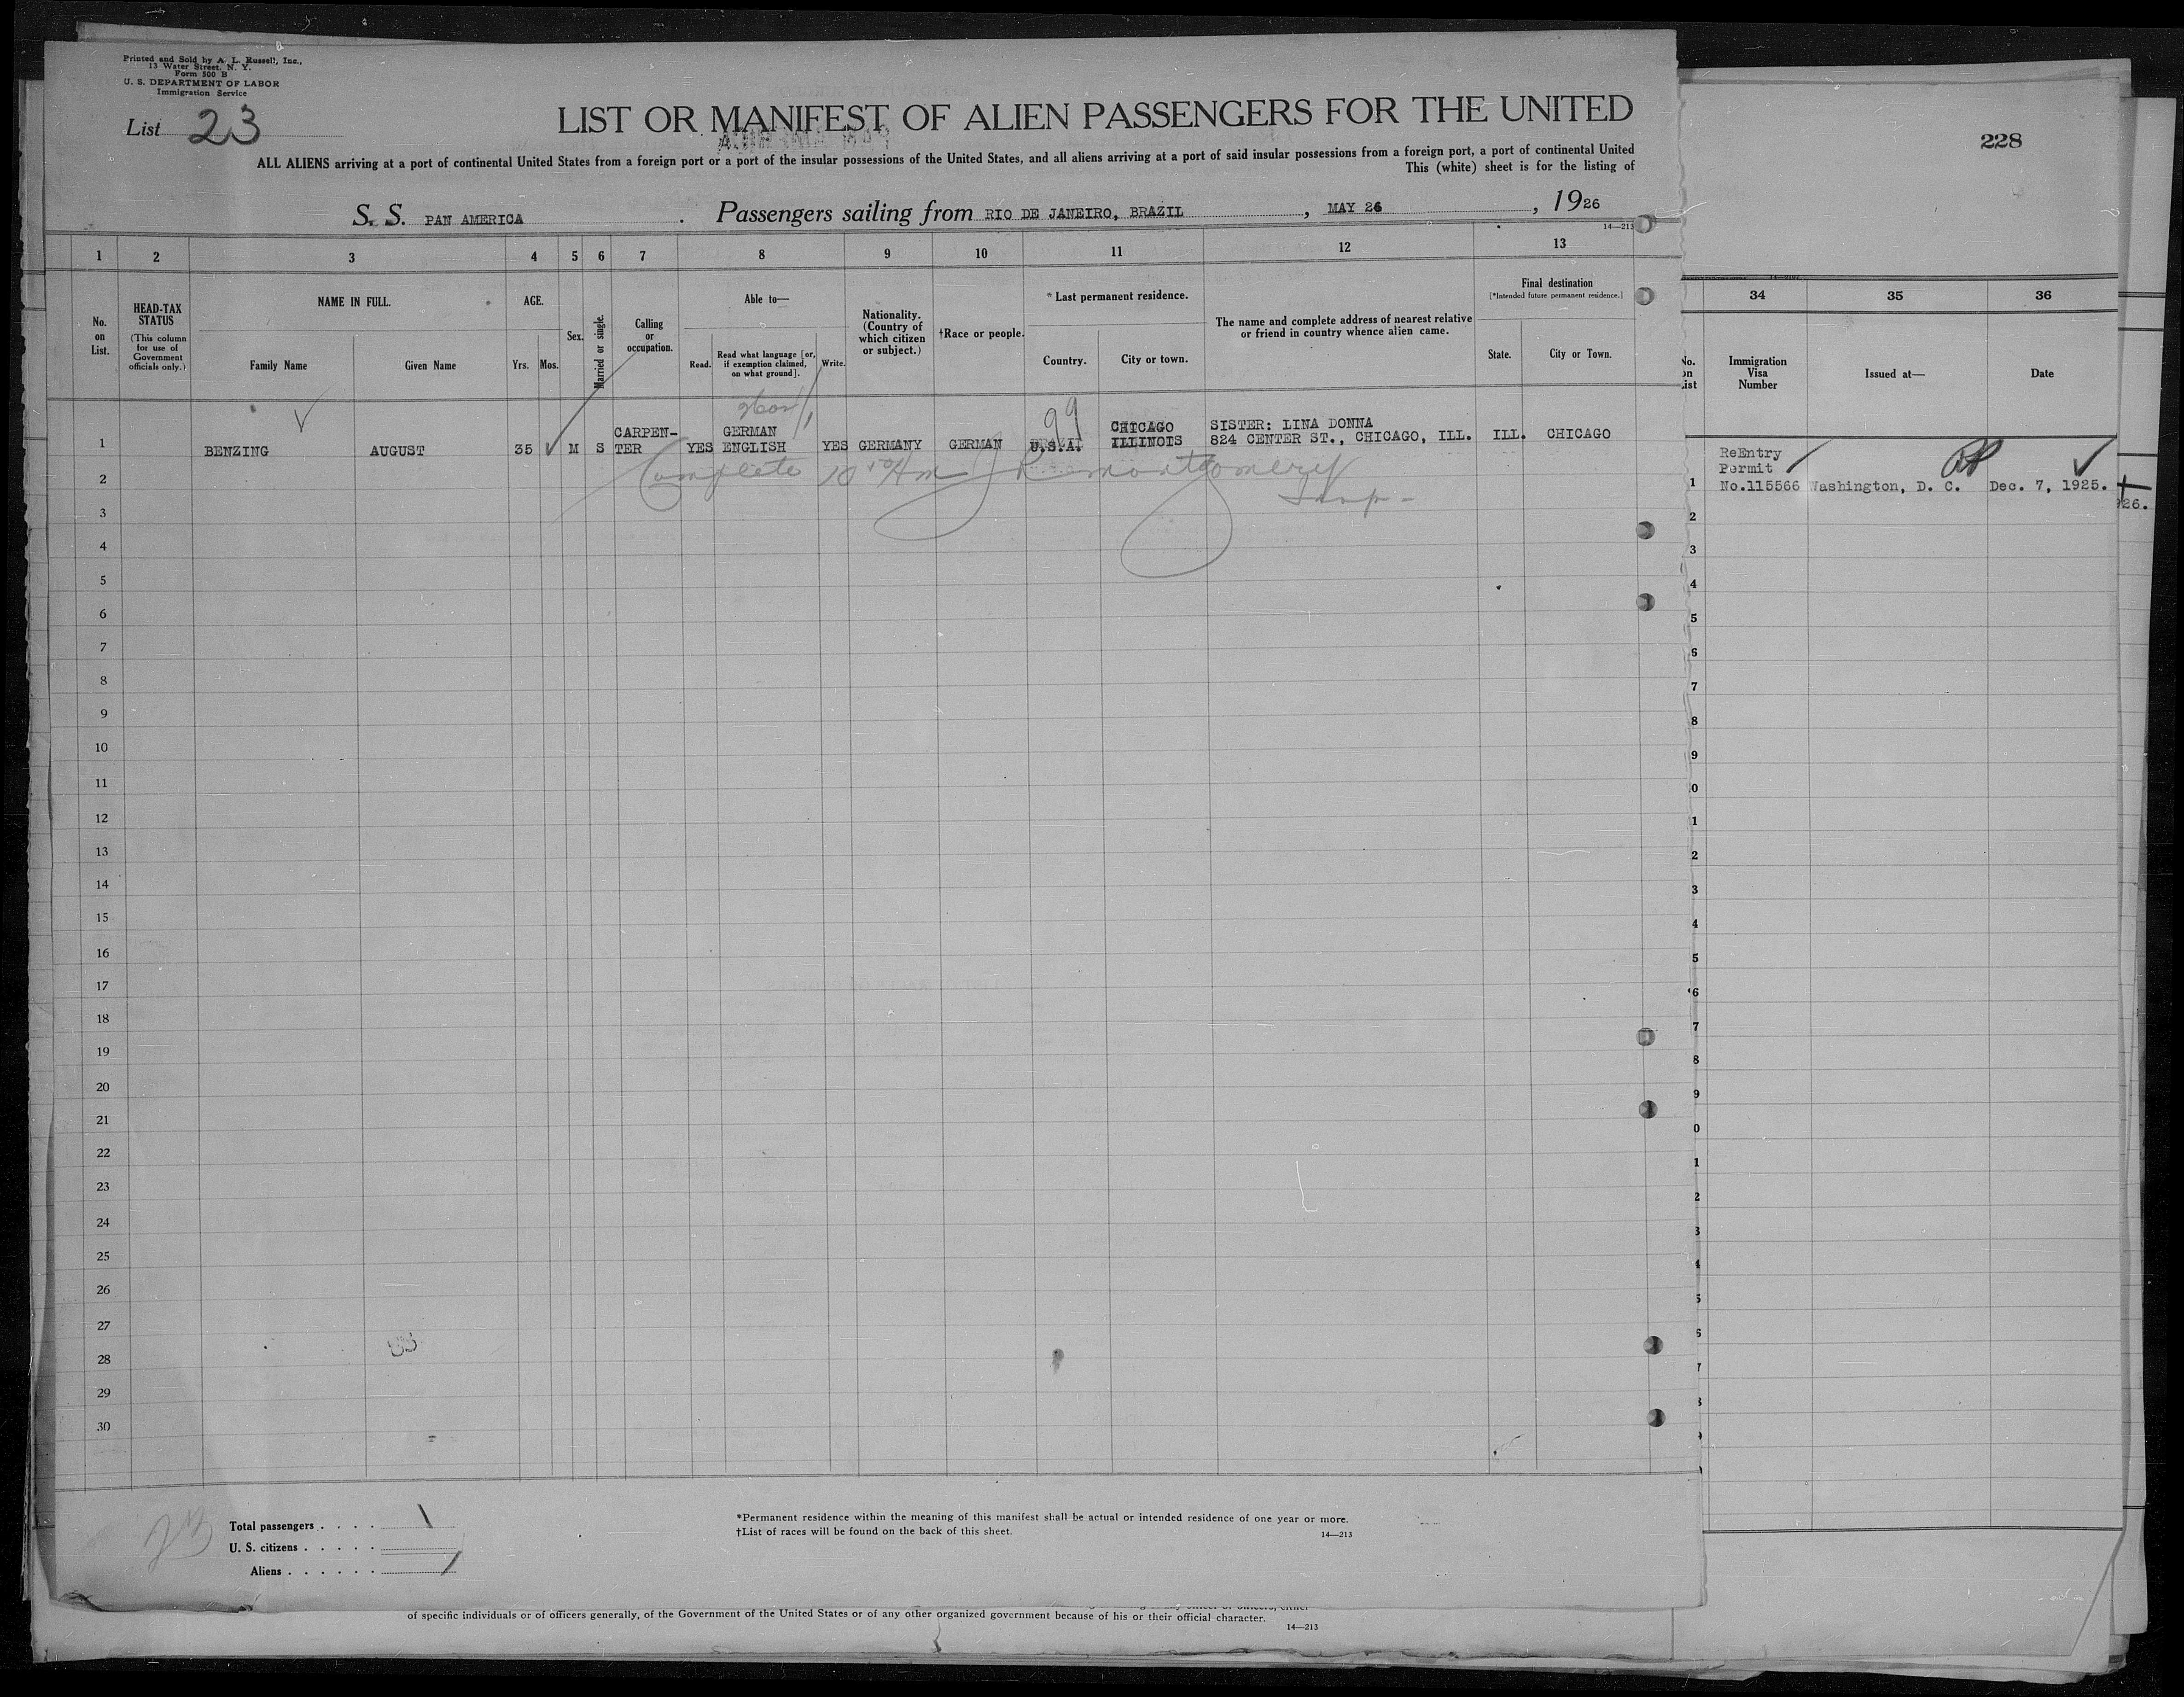 Printed and Sold by A. L. Russell, Inc.,
13 Water Street, N. Y.
Form 500 B
U. S. DEPARTMENT OF LABOR
Immigration Service
List 23
LIST OR MANIFEST OF ALIEN PASSENGERS FOR THE UNITED
ALL ALIENS arriving at a port of continental United States from a foreign port or a port of the insular possessions of the United States, and all aliens arriving at a port of said insular possessions from a foreign port, a port of continental United
This (white) sheet is for the listing of
S. S. PAN AMERICA . Passengers sailing from RIO DE JANEIRO, BRAZIL , MAY 26 , 1926
14—213
228
1 2 3 4 5 6 7 8 9 10 11 12 13
34 35 36
No. on List.
HEAD-TAX STATUS
(This column for use of Government officials only.)
NAME IN FULL.
Family Name
Given Name
AGE.
Yrs. Mos.
Sex.
Married or single.
Calling or occupation.
Able to—
Read.
Read what language [or, if exemption claimed, on what ground].
Write.
Nationality. (Country of which citizen or subject.)
†Race or people.
*Last permanent residence.
Country.
City or town.
The name and complete address of nearest relative or friend in country whence alien came.
Final destination
[*Intended future permanent residence.]
State.
City or Town.
No. on List
Immigration Visa Number
Issued at—
Date
99
1 BENZING AUGUST 35 M S CARPENTER YES GERMAN ENGLISH YES GERMANY GERMAN U.S.A. CHICAGO ILLINOIS SISTER: LINA DONNA 824 CENTER ST., CHICAGO, ILL. ILL. CHICAGO
Complete Montgomery
Insp-
ReEntry
Permit
1 No.115566 Washington, D. C. Dec. 7, 1925.
26.
2
3
4
5
6
7
8
9
10
11
12
13
14
15
16
17
18
19
20
21
22
23
24
25
26
27
28
29
30
Total passengers . . . . 1
U. S. citizens . . . . .
Aliens . . . . . . 1
*Permanent residence within the meaning of this manifest shall be actual or intended residence of one year or more.
†List of races will be found on the back of this sheet.
14—213
of specific individuals or of officers generally, of the Government of the United States or of any other organized government because of his or their official character.
14—213